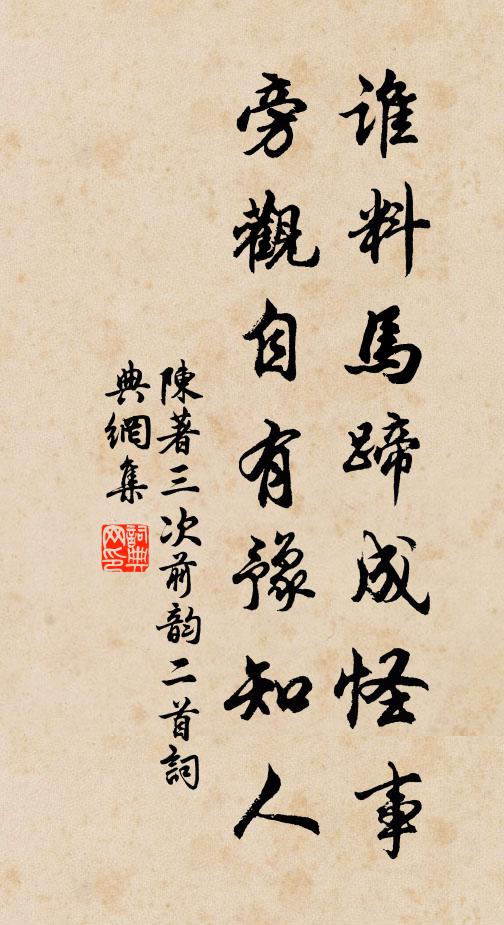 谁料馬蹄成怪事
旁觀自有豫知人
陳著三次前韵二首詞
典網集
詞典网印